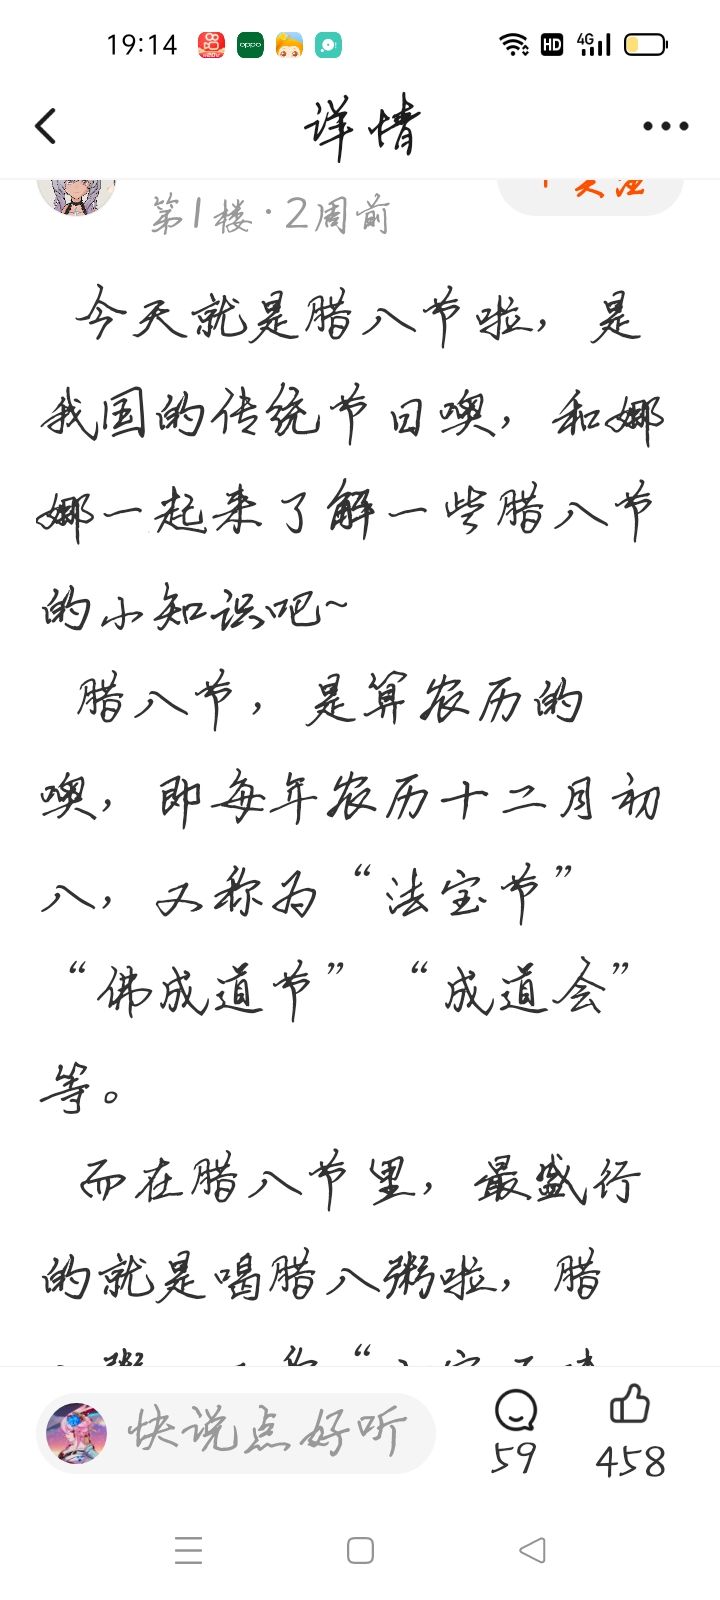 19:14
oppo
HD
4G
详情
第1楼·2周前
今天就是腊八节啦，是
我国的传统节日噢，和娜
娜一起来了解一些腊八节
的小知识吧~
腊八节，是算农历的
噢，即每年农历十二月初
八，又称为“法宝节”
“佛成道节”“成道会”
等。
而在腊八节里，最盛行
的就是喝腊八粥啦，腊
快说点好听
59
458